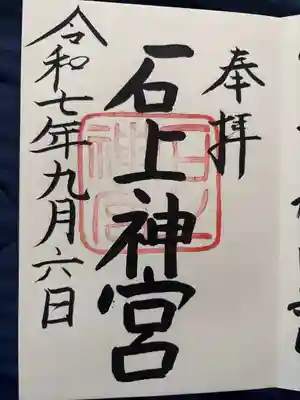 奉拝
石上神宮
令和七年九月六日